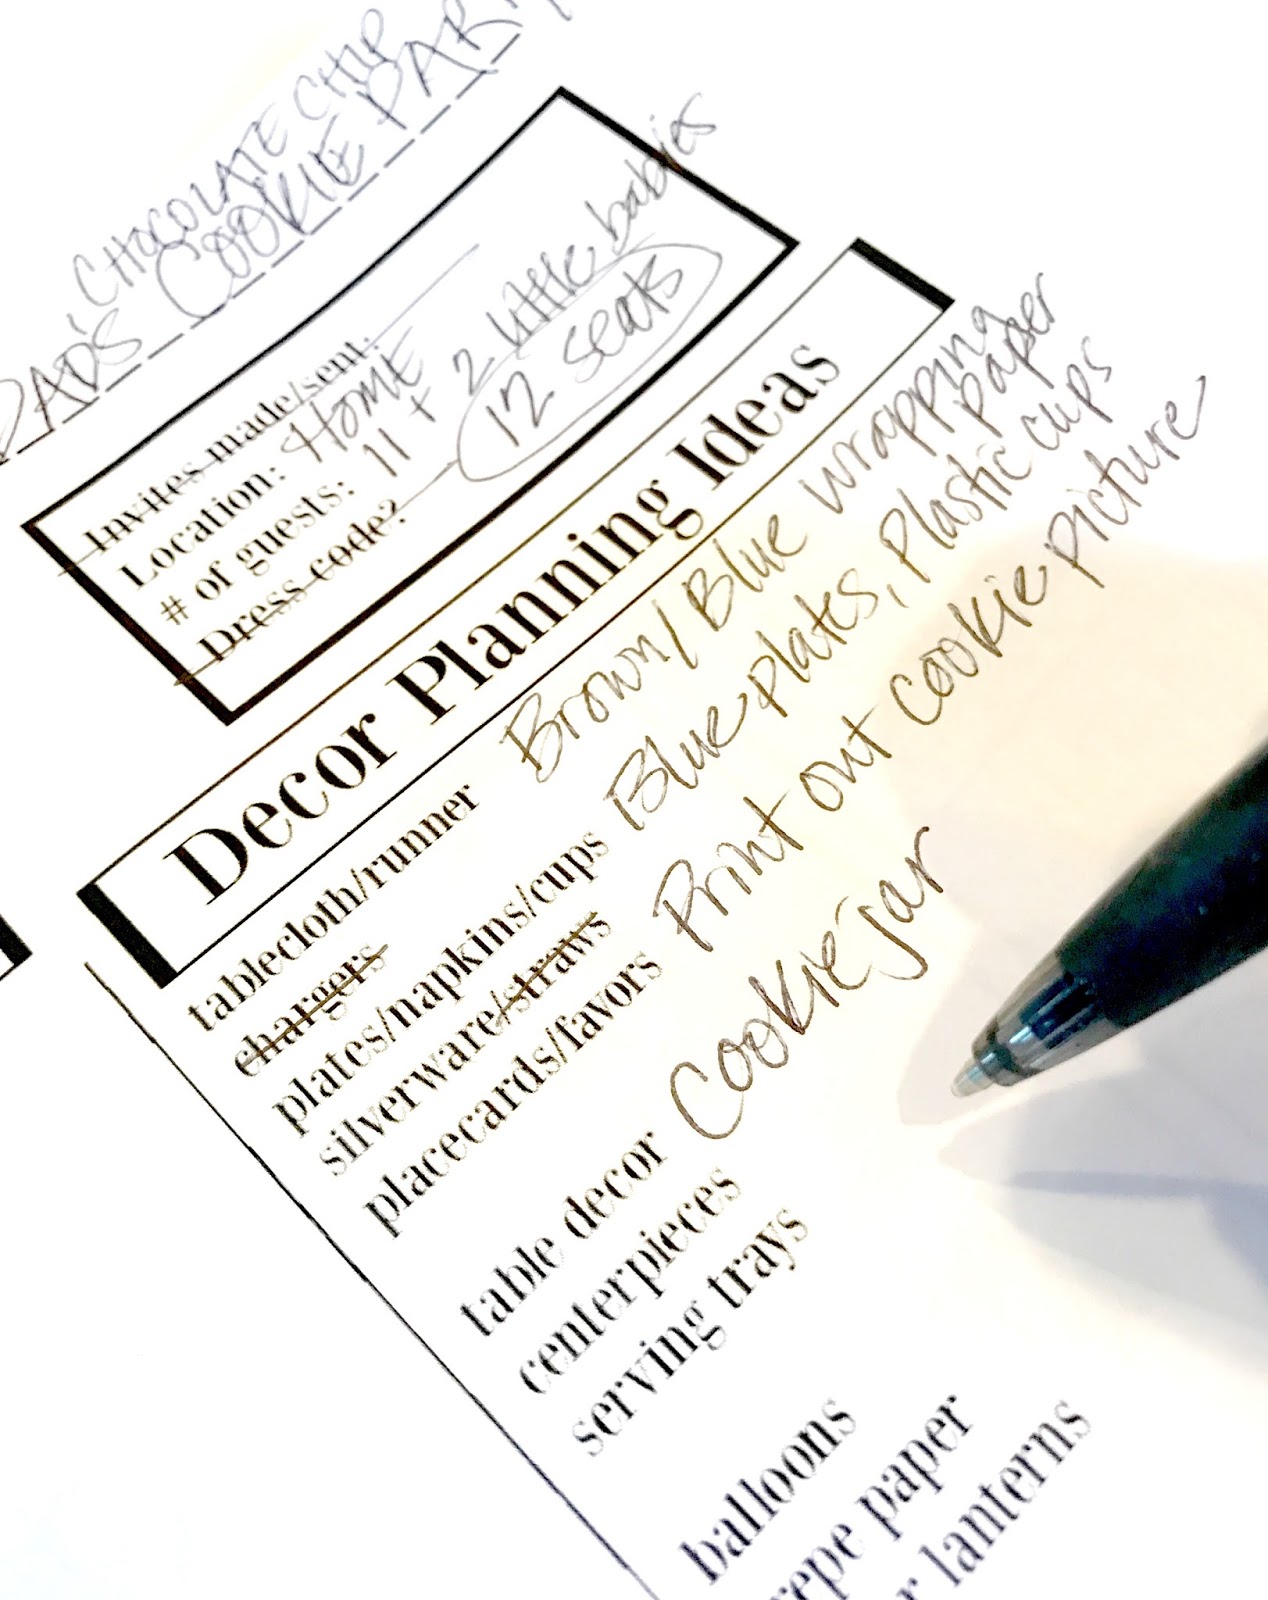 DAD'S CHOCOLATE CHIP
COOKIE PARTY
Invites made/sent:
Location: HOME
# of guests: 11 + 2 little babies
Dress code? 12 seats
Decor Planning Ideas
tablecloth/runner Brown/Blue wrapping paper
chargers
plates/napkins/cups Blue plates, Plastic cups
silverware/straws
placecards/favors Print out cookie picture
table decor Cookie jar
centerpieces
serving trays
balloons
paper
lanterns